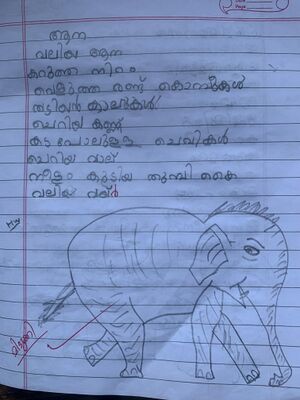 ആന
വലിയ ആന
കറുത്ത നിറം
വെളുത്ത രണ്ട് കൊമ്പുകൾ
തടിയൻ കാലുകൾ
ചെറിയ കണ്ണ്
കട പോലുള്ള ചെവികൾ
ചെറിയ വാല്
നീളം കൂടിയ തുമ്പി കൈ
വലിയ വയർ